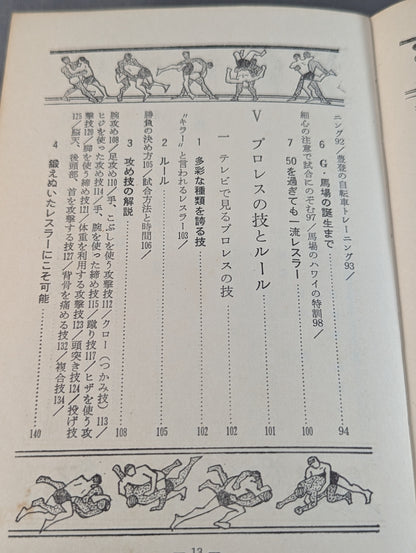 ニング92／豊登の自転車トレーニング93／
6 G・馬場の誕生まで……94
細心の注意で試合にのぞむ97／馬場のハワイの特訓98／
7 50を過ぎても一流レスラー……100
V プロレスの技とルール……101
一 テレビで見るプロレスの技……102
1 多彩な種類を誇る技……102
"キラー"と言われるレスラー103／
2 ルール……105
勝負の決め方105／試合方法と時間106／
3 攻め技の解説……108
腕攻め108／足攻め110／手、こぶしを使う攻撃技112／クロー（つかみ技）113／
ヒジを使った攻め技114／手、腕を使った締め技115／蹴り技117／ヒザを使う攻
撃技120／脚を使う締め技121／体重を利用する攻撃技123／頭突き技124／投げ技
125／脳天、後頭部、首を攻撃する技127／背骨を痛める技132／複合技134／
4 鍛えぬいたレスラーにこそ可能……140
— 13 —